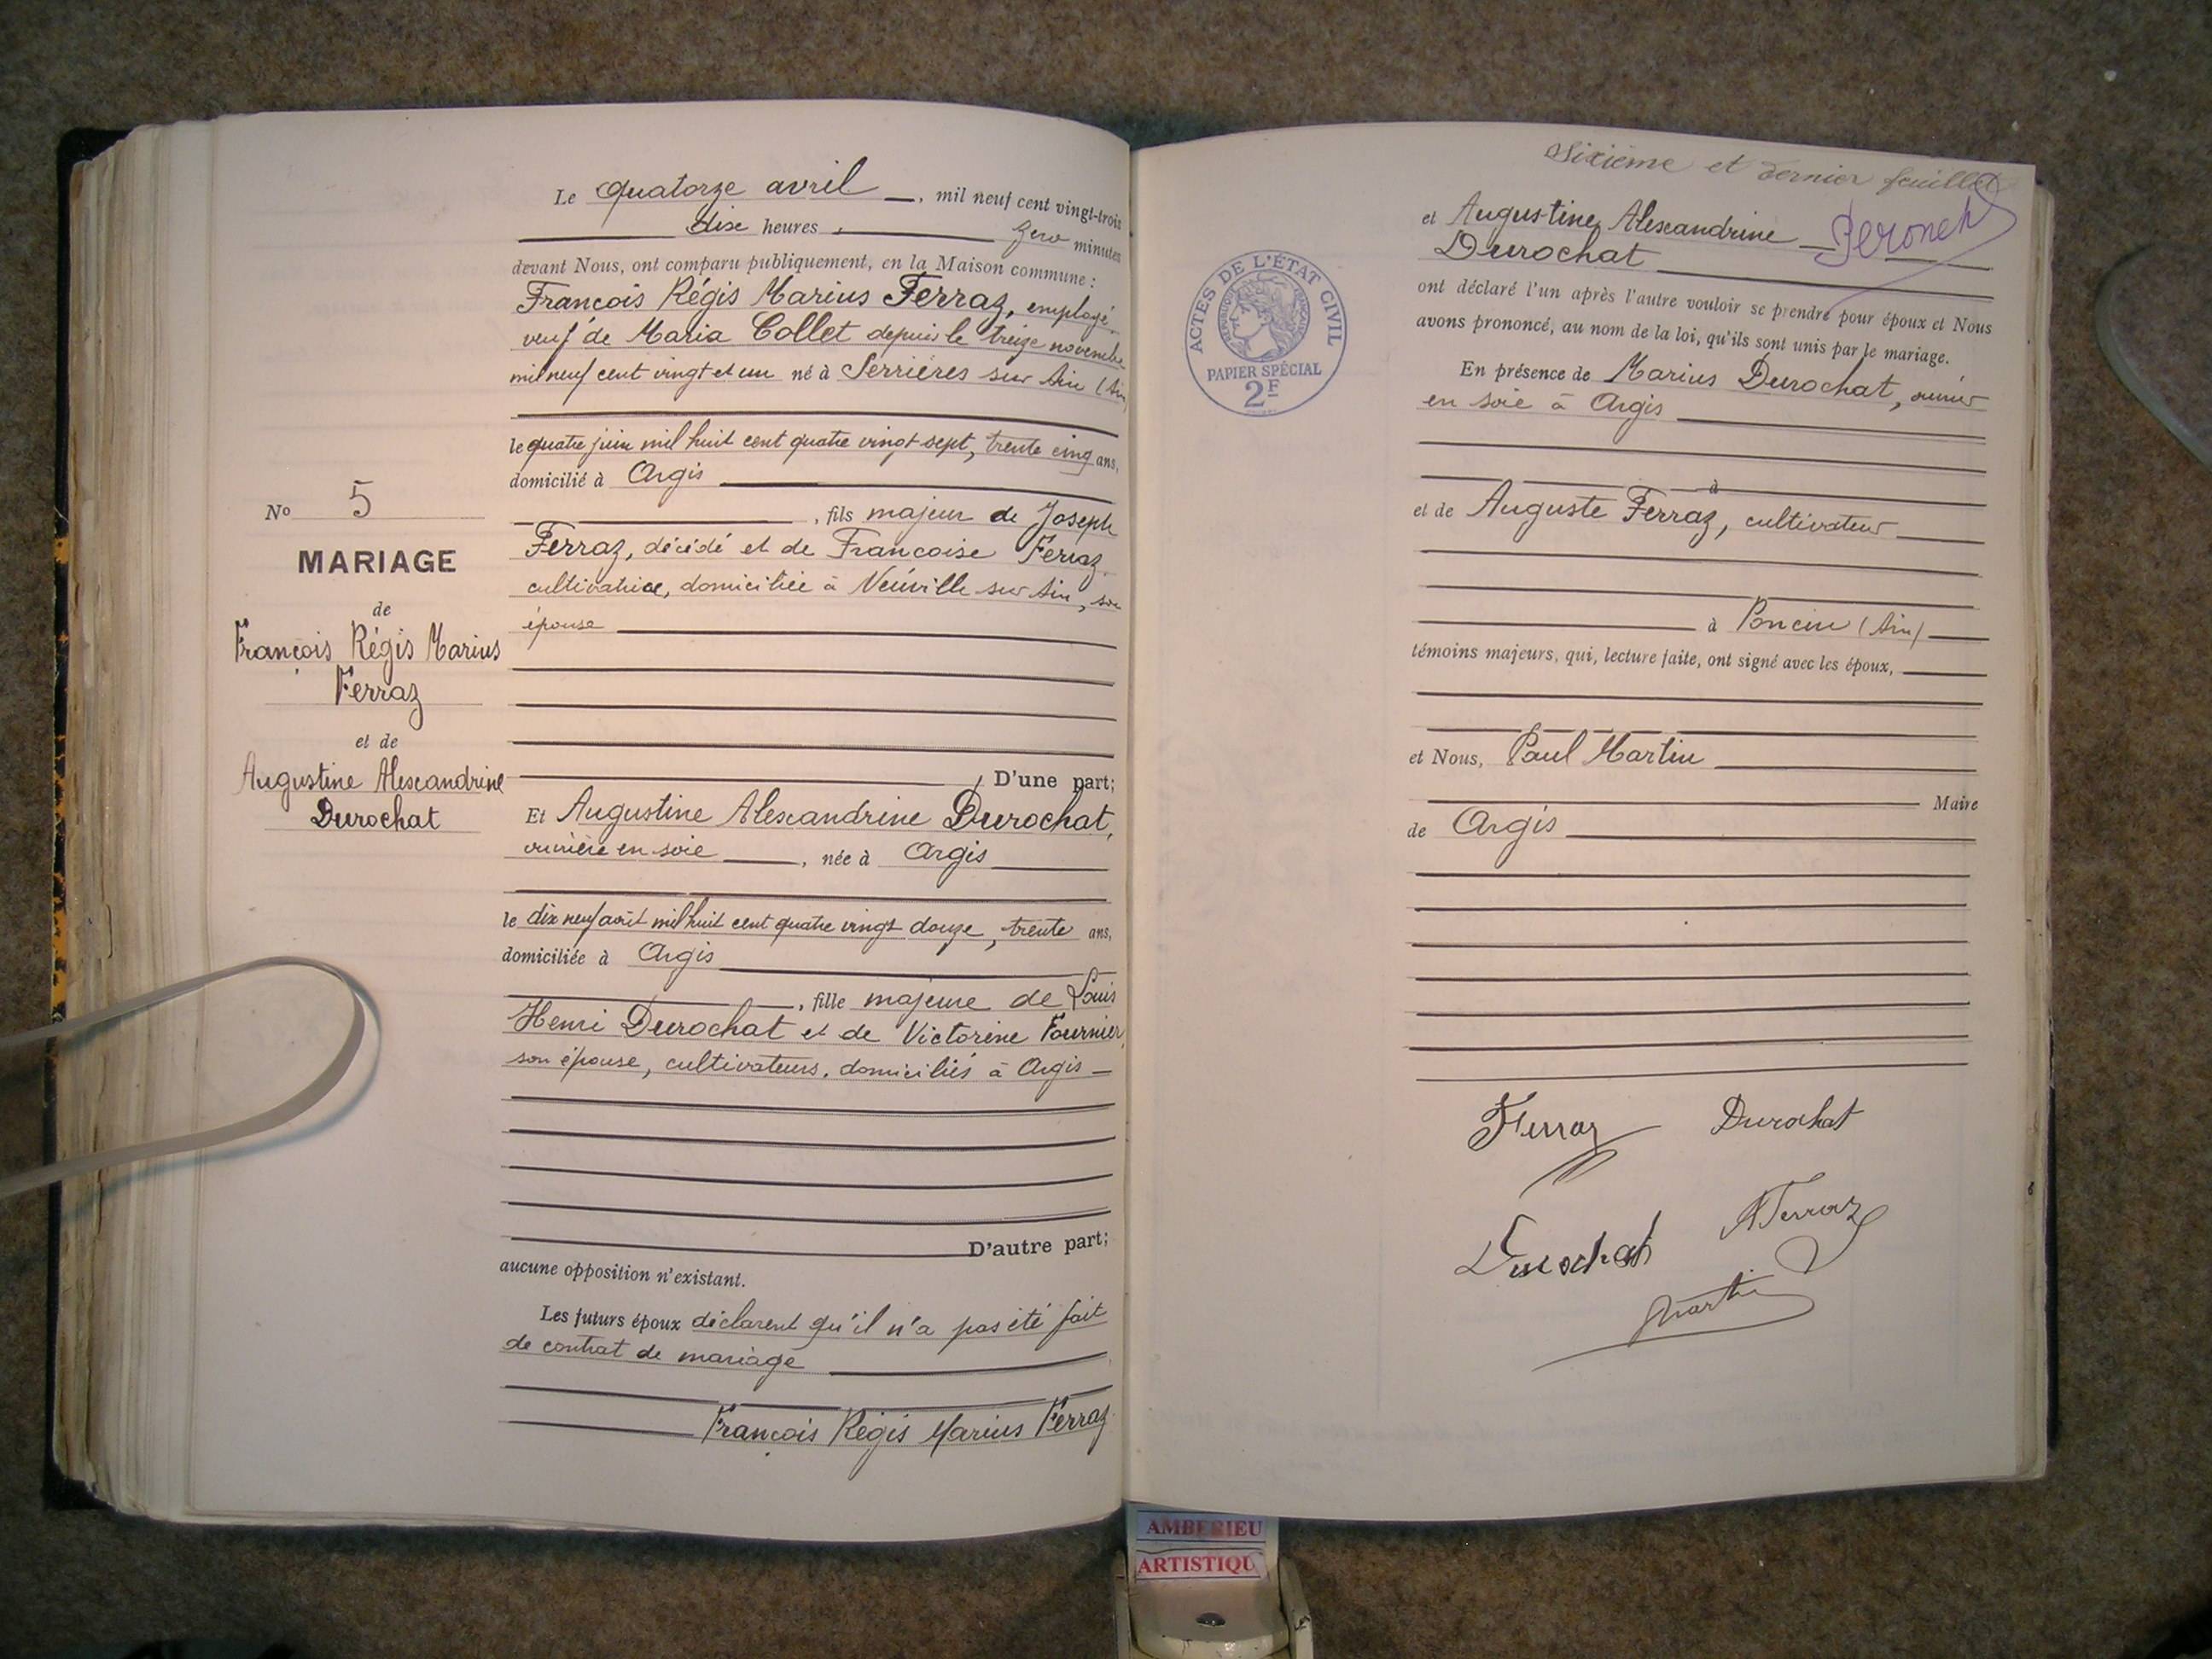 Le quatorze avril, mil neuf cent vingt-trois
dix heures, zéro minutes
devant Nous, ont comparu publiquement, en la Maison commune :
François Régis Marius Ferraz, employé,
veuf de Maria Collet depuis le treize novembre
mil neuf cent vingt et un né à Serrières sur Ain (Ain)
le quatre juin mil huit cent quatre vingt sept, trente cinq ans,
domicilié à Argis
, fils majeur de Joseph
Ferraz, décédé et de Francoise Ferraz
cultivatrice, domiciliée à Neuville sur Ain, son
épouse
D'une part;
Et Augustine Alexandrine Durochat,
ouvrière en soie, née à Argis
le dix neuf août mil huit cent quatre vingt douze, trente ans,
domiciliée à Argis
, fille majeure de Louis
Henri Durochat et de Victorine Fournier,
son épouse, cultivateurs, domiciliés à Argis
D'autre part;
aucune opposition n'existant.
Les futurs époux déclarent qu'il n'a pas été fait
de contrat de mariage
François Régis Marius Ferraz
No 5
MARIAGE
de
François Régis Marius
Ferraz
et de
Augustine Alexandrine
Durochat
Sixième et dernier feuillet
et Augustine Alexandrine
Durochat
ont déclaré l'un après l'autre vouloir se prendre pour époux et Nous
avons prononcé, au nom de la loi, qu'ils sont unis par le mariage.
En présence de Marius Durochat, ouvrier
en soie à Argis
à
et de Auguste Ferraz, cultivateur
à Poncin (Ain)
témoins majeurs, qui, lecture faite, ont signé avec les époux,
et Nous, Paul Martin
Maire
de Argis
Ferraz Durochat
Durochat AFerraz
Martin
ACTES DE L'ÉTAT CIVIL
RÉPUBLIQUE FRANÇAISE
PAPIER SPÉCIAL
2F
AMBERIEU
ARTISTIQU